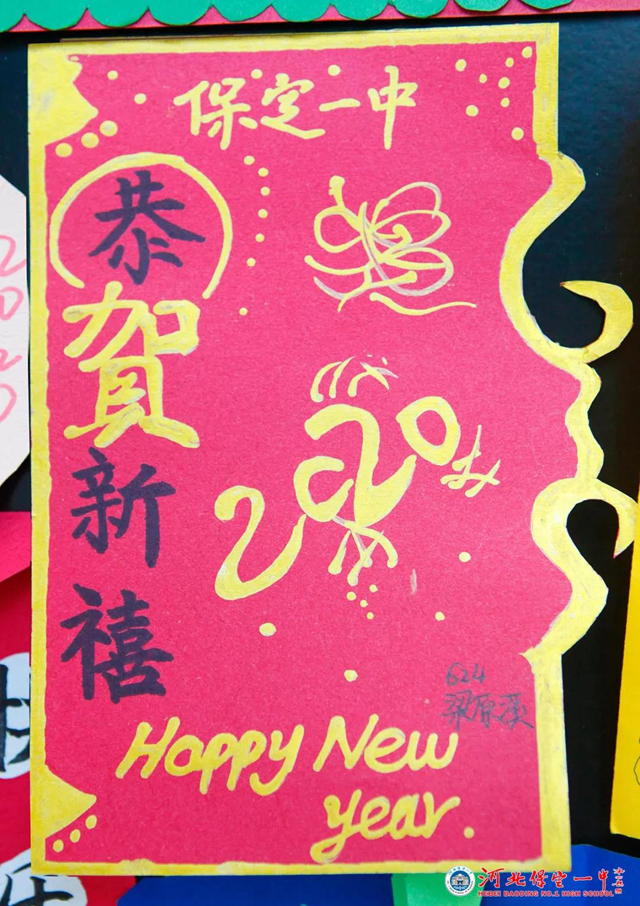 保定一中
恭
賀
新
禧
2020
624
梁原溪
Happy New
year.
河北保定一中
HEBEI BAODING NO.1 HIGH SCHOOL
2020